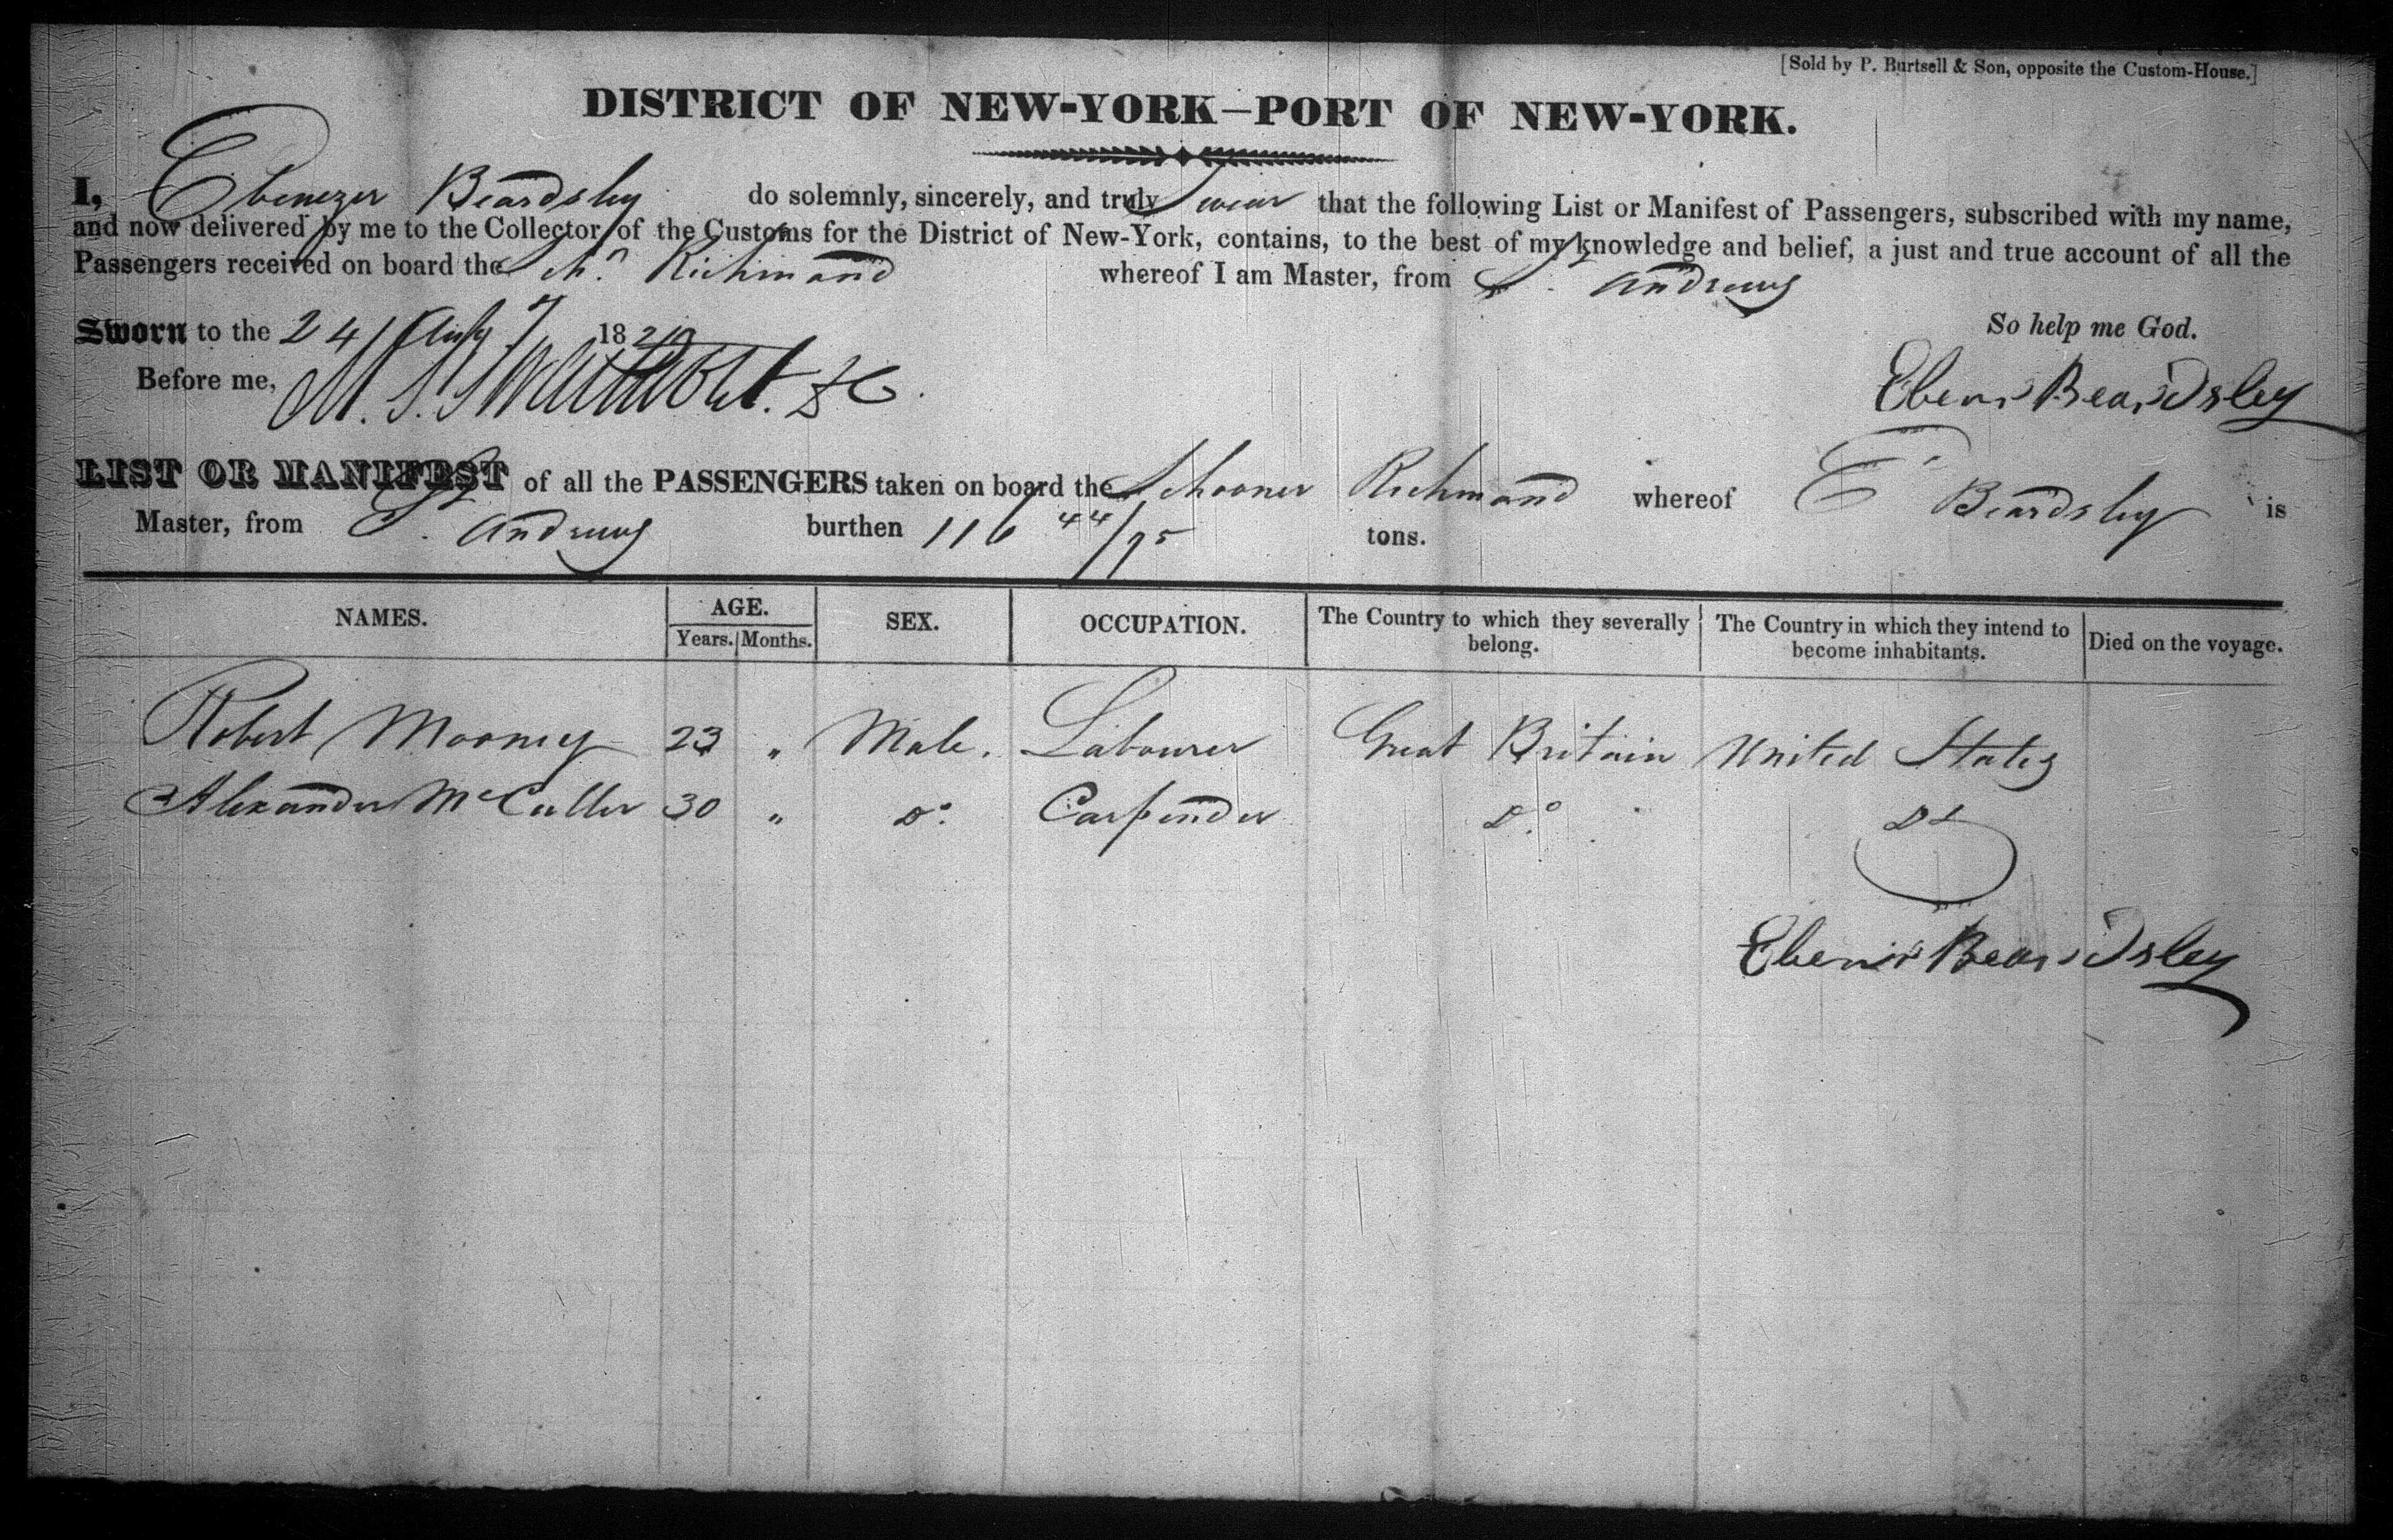 [Sold by P. Burtsell & Son, opposite the Custom-House.]
DISTRICT OF NEW-YORK—PORT OF NEW-YORK.
I, Ebenezer Beardsley do solemnly, sincerely, and truly Swear that the following List or Manifest of Passengers, subscribed with my name,
and now delivered by me to the Collector of the Customs for the District of New-York, contains, to the best of my knowledge and belief, a just and true account of all the
Passengers received on board the Schr. Richmond whereof I am Master, from St. Andrews
Sworn to the 24 Augt 1829 So help me God.
Before me, M. S. Swartwout. DC. Ebenr Beardsley
LIST OR MANIFEST of all the PASSENGERS taken on board the Schooner Richmond whereof E Beardsley is
Master, from St. Andrews burthen 116 44/95 tons.
NAMES. AGE. Years. Months. SEX. OCCUPATION. The Country to which they severally belong. The Country in which they intend to become inhabitants. Died on the voyage.
Robert Mooney 23 „ Male. Labourer Great Britain United States
Alexander McCuller 30 „ Do. Carpender Do. Do
Ebenr Beardsley